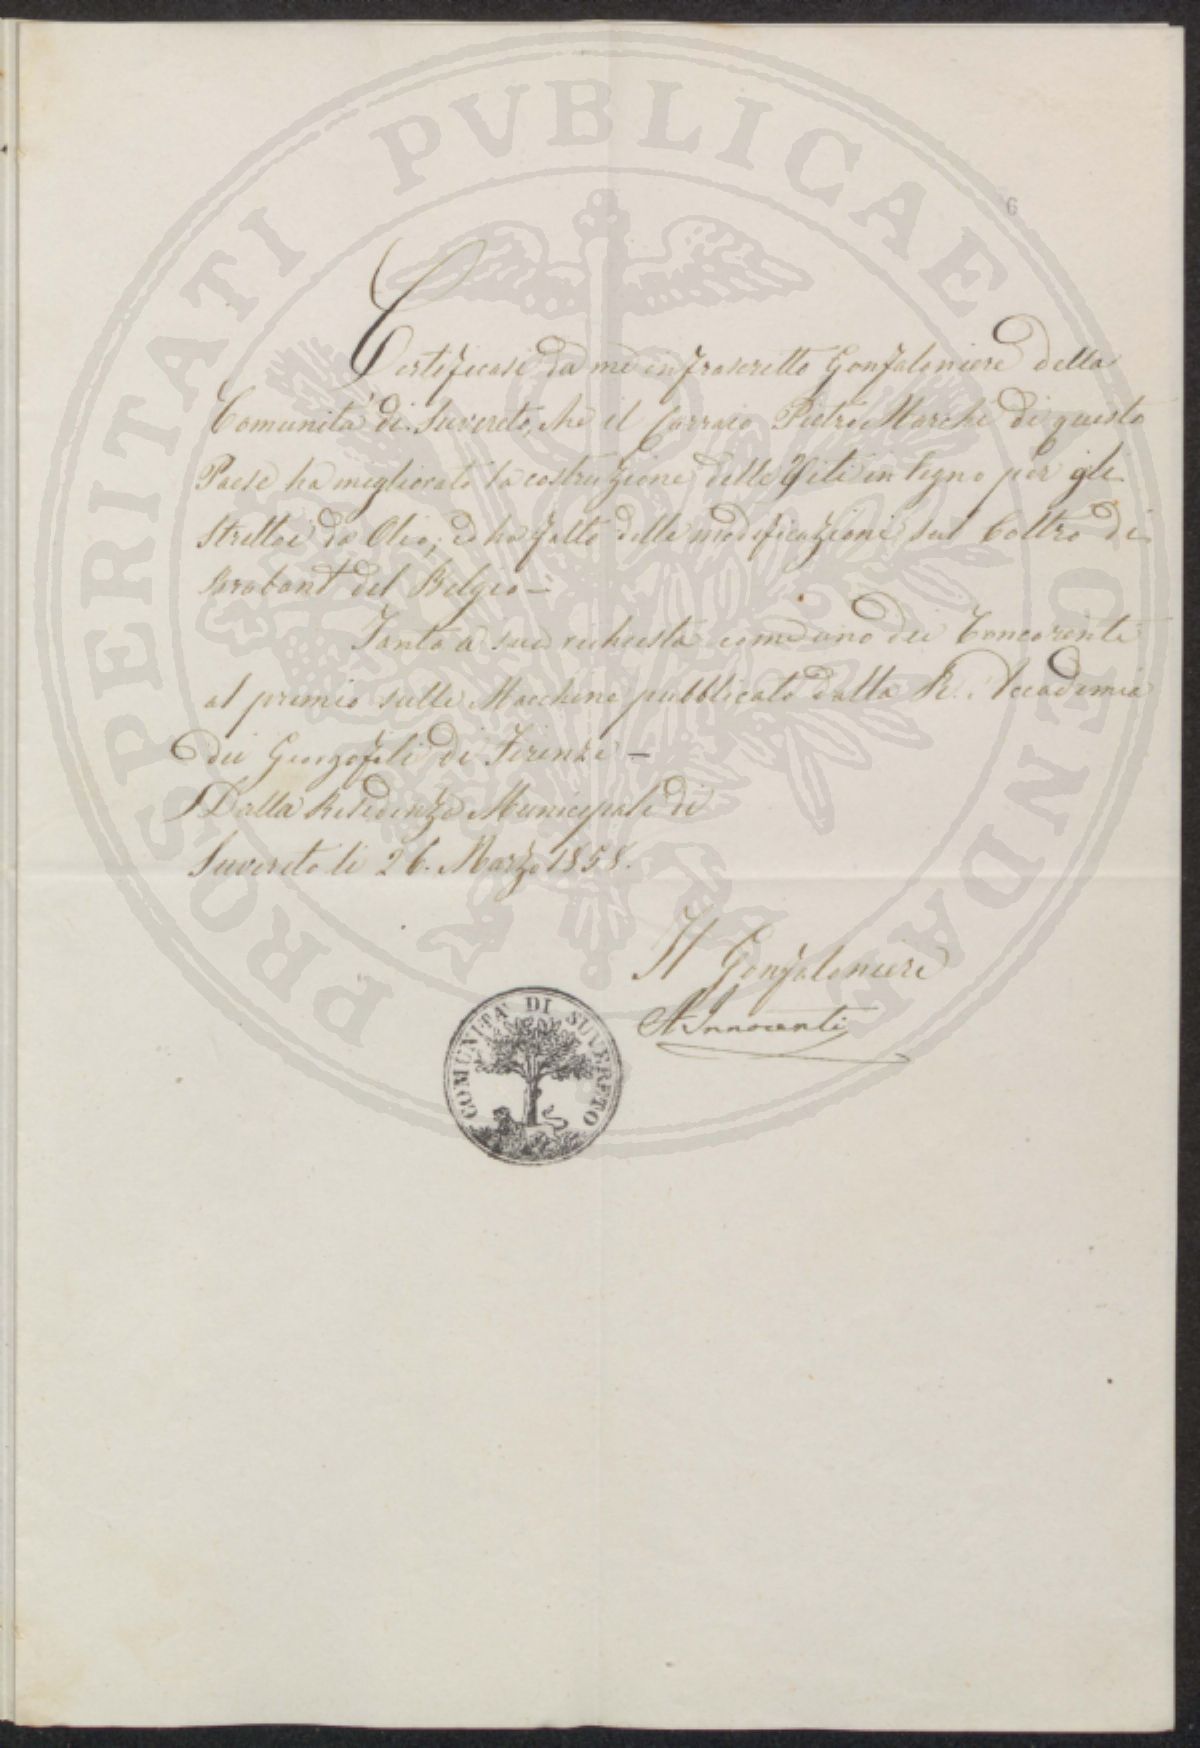 6
Certificasi da me infrascritto Gonfaloniere della
Comunità di Suvereto, che il Carraio Pietro Marchi di questo
Paese ha migliorato la costruzione delle Viti in legno per gli
Strettoi da Olio; ed ha fatto delle modificazioni sul Coltro di
Brabant del Belgio —
Tanto a sua richiesta come uno dei Concorrenti
al premio sulle Macchine pubblicato dalla R. Accademia
dei Georgofili di Firenze —
Dalla Residenza Municipale di
Suvereto li 26. Marzo 1858.
Il Gonfaloniere
A Innocenti
COMUNITA' DI SUVERETO
PROSPERITATI PVBLICAE AVGENDAE